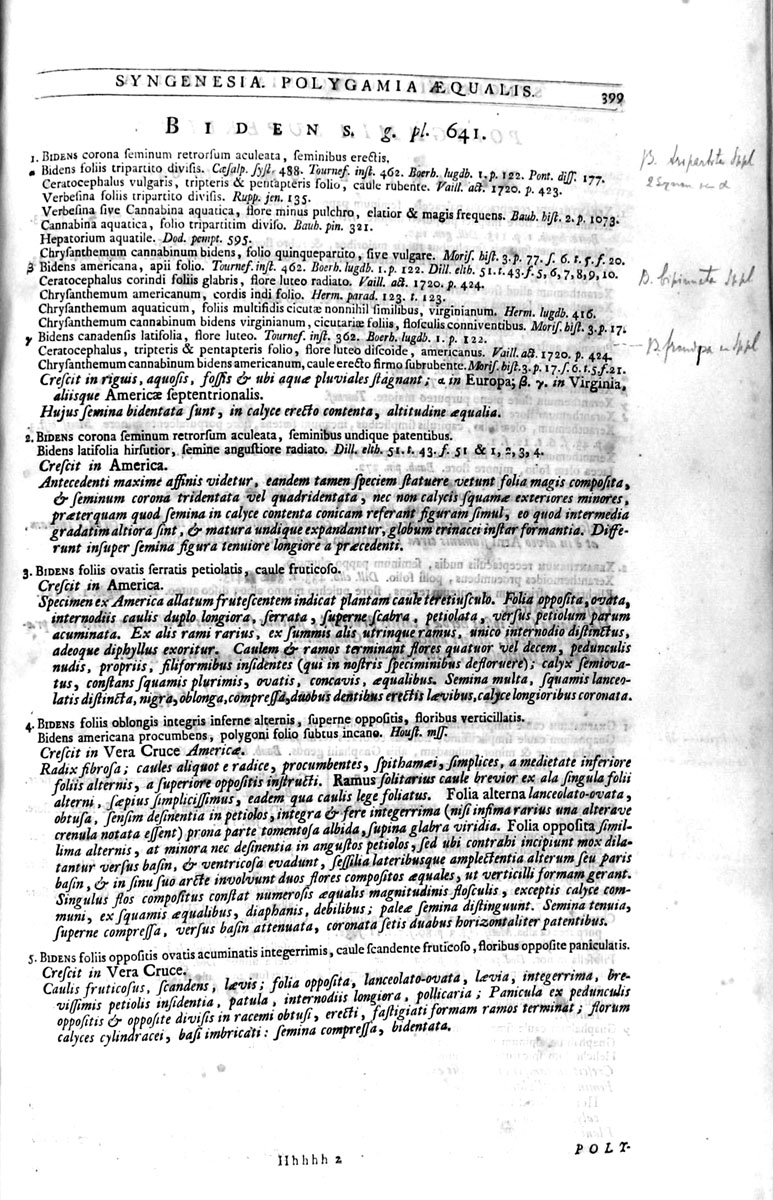 SYNGENESIA. POLYGAMIA ÆQUALIS. 399
BIDENS. g. pl. 641.
1. BIDENS corona seminum retrorsum aculeata, seminibus erectis.
Bidens foliis tripartito divisis. Cæsalp. syst. 488. Tournef. inst. 462. Boerh. lugdb. 1. p. 122. Pont. diss. 177.
B. tripartita Sppl
Ceratocephalus vulgaris, tripteris & pentapteris folio, caule rubente. Vaill. act. 1720. p. 423.
Verbesina foliis tripartito divisis. Rupp. jen. 135.
Verbesina sive Cannabina aquatica, flore minus pulchro, elatior & magis frequens. Bauh. hist. 2. p. 1073.
Cannabina aquatica, folio tripartitim diviso. Bauh. pin. 321.
Hepatorium aquatile. Dod. pempt. 595.
Chrysanthemum cannabinum bidens, folio quinquepartito, sive vulgare. Moris. hist. 3. p. 77. s. 6. t. 5. f. 20.
β Bidens americana, apii folio. Tournef. inst. 462. Boerh. lugdb. 1. p. 122. Dill. elth. 51. t. 43. f. 5, 6, 7, 8, 9, 10.
B. bipinnata Sppl
Ceratocephalus corindi foliis glabris, flore luteo radiato. Vaill. act. 1720. p. 424.
Chrysanthemum americanum, cordis indi folio. Herm. parad. 123. t. 123.
Chrysanthemum aquaticum, foliis multifidis cicutæ nonnihil similibus, virginianum. Herm. lugdb. 416.
Chrysanthemum cannabinum bidens virginianum, cicutariæ foliis, flosculis conniventibus. Moris. hist. 3. p. 17.
γ Bidens canadensis latifolia, flore luteo. Tournef. inst. 362. Boerh. lugdb. 1. p. 122.
B. frondosa Sppl
Ceratocephalus, tripteris & pentapteris folio, flore luteo discoide, americanus. Vaill. act. 1720. p. 424.
Chrysanthemum cannabinum bidens americanum, caule erecto firmo subrubente. Moris. hist. 3. p. 17. s. 6. t. 5. f. 21.
Crescit in riguis, aquosis, fossis & ubi aquæ pluviales stagnant; α in Europa; β. γ. in Virginia,
aliisque Americæ septentrionalis.
Hujus semina bidentata sunt, in calyce erecto contenta, altitudine æqualia.
2. BIDENS corona seminum retrorsum aculeata, seminibus undique patentibus.
Bidens latifolia hirsutior, semine angustiore radiato. Dill. elth. 51. t. 43. f. 51 & 1, 2, 3, 4.
Crescit in America.
Antecedenti maxime affinis videtur, eandem tamen speciem statuere vetunt folia magis composita,
& seminum corona tridentata vel quadridentata, nec non calycis squamæ exteriores minores,
præterquam quod semina in calyce contenta conicam referant figuram simul, eo quod intermedia
gradatim altiora sint, & matura undique expandantur, globum erinacei instar formantia. Diffe-
runt insuper semina figura tenuiore longiore a præcedenti.
3. BIDENS foliis ovatis serratis petiolatis, caule fruticoso.
Crescit in America.
Specimen ex America allatum frutescentem indicat plantam caule teretiusculo. Folia opposita, ovata,
internodiis caulis duplo longiora, serrata, superne scabra, petiolata, versus petiolum parum
acuminata. Ex alis rami rarius, ex summis alis utrinque ramus, unico internodio distinctus,
adeoque diphyllus exoritur. Caulem & ramos terminant flores quatuor vel decem, pedunculis
nudis, propriis, filiformibus insidentes (qui in nostris speciminibus defloruere); calyx semiova-
tus, constans squamis plurimis, ovatis, concavis, æqualibus. Semina multa, squamis lanceo-
latis distincta, nigra, oblonga, compressa, duobus dentibus erectis lævibus, calyce longioribus coronata.
4. BIDENS foliis oblongis integris inferne alternis, superne oppositis, floribus verticillatis.
Bidens americana procumbens, polygoni folio subtus incano. Houst. mss.
Crescit in Vera Cruce Americæ.
Radix fibrosa; caules aliquot e radice, procumbentes, spithamæi, simplices, a medietate inferiore
foliis alternis, a superiore oppositis instructi. Ramus solitarius caule brevior ex ala singula folii
alterni, sæpius simplicissimus, eadem qua caulis lege foliatus. Folia alterna lanceolato-ovata,
obtusa, sensim desinentia in petiolos, integra & fere integerrima (nisi infima rarius una alterave
crenula notata essent) prona parte tomentosa albida, supina glabra viridia. Folia opposita simil-
lima alternis, at minora nec desinentia in angustos petiolos, sed ubi contrahi incipiunt mox dila-
tantur versus basin, & ventricosa evadunt, sessilia lateribusque amplectentia alterum seu paris
basin, & in sinu suo arcte involvunt duos flores compositos æquales, ut verticilli formam gerant.
Singulus flos compositus constat numerosis æqualis magnitudinis flosculis, exceptis calyce com-
muni, ex squamis æqualibus, diaphanis, debilibus; paleæ semina distinguunt. Semina tenuia,
superne compressa, versus basin attenuata, coronata setis duabus horizontaliter patentibus.
5. BIDENS foliis oppositis ovatis acuminatis integerrimis, caule scandente fruticoso, floribus opposite paniculatis.
Crescit in Vera Cruce.
Caulis fruticosus, scandens, lævis; folia opposita, lanceolato-ovata, lævia, integerrima, bre-
vissimis petiolis insidentia, patula, internodiis longiora, pollicaria; Panicula ex pedunculis
oppositis & opposite divisis in racemi obtusi, erecti, fastigiati formam ramos terminat; florum
calyces cylindracei, basi imbricati: semina compressa, bidentata.
Hhhhh 2
POLY-